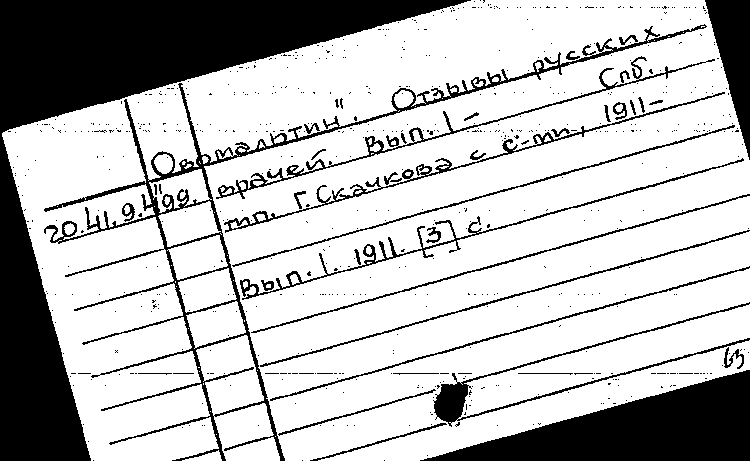 „Овомальтин". Отзывы русских
20.41.9.499. врачей. Вып. 1 – Спб.,
тип. Г. Скачкова с с-ми, 1911–
Вып. 1. 1911. [3] с.